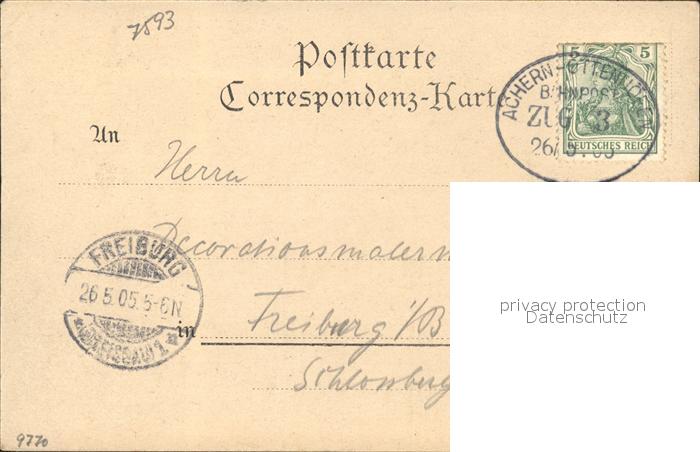 7593
Postkarte
Correspondenz-Karte
5 5
DEUTSCHES REICH
ACHERN-OTTENHÖFEN
BAHNPOST
ZUG 3
26/5 05
An
Herrn
Decorationsmaler
FREIBURG
26.5.05.5-6N
(BREISGAU) 1
in Freiburg i/B
Schlossberg
privacy protection
Datenschutz
9770